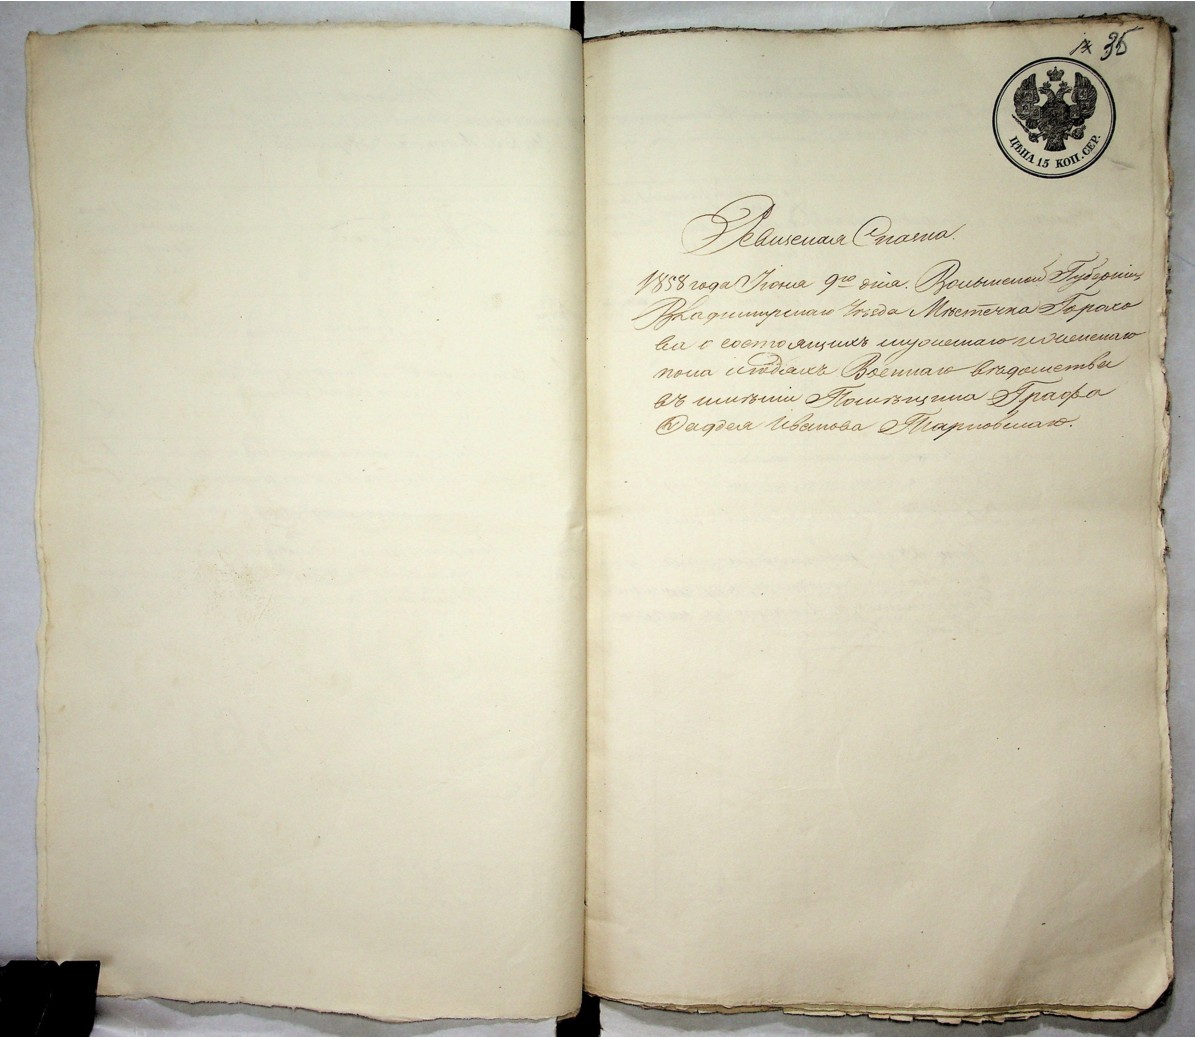 35
ЦѢНА 15 КОП. СЕР.
Ревизская Сказка.
1858 года Июня 9го дня. Волынской Губерніи,
Владимирскаго Уезда Мѣстечка Горохо
ва о состоящихъ мужескаго и женскаго
пола людяхъ Военнаго вѣдомства
въ имѣніи Помѣщика Графа
Фаддея Иванова Тарновскаго.